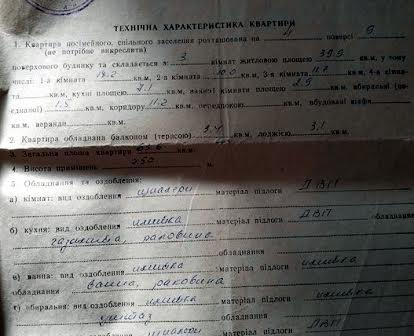 ТЕХНІЧНА ХАРАКТЕРИСТИКА КВАРТИРИ
1. Квартира посімейного, спільного заселення розташована на 4 поверсі 9
(не потрібне викреслити)
поверхового будинку та складається з 3 кімнат житловою площею 39.9 кв.м, у тому
числі: 1-а кімната 18.2 кв.м, 2-а кімната 10.0 кв.м, 3-я кімната 11.7 кв.м, 4-а кімна-
та кв.м, кухні площею 7.1 кв.м, ванної кімнати площею 2.9 кв.м, вбиральні (по-
єднаної) 1.5 кв.м, коридору 11.2 кв.м, передпокою кв.м, вбудовані шафи
кв.м, веранди кв.м.
2. Квартира обладнана балконом (терасою) 3,4 кв.м, лоджією 3,1
3. Загальна площа квартири кв.м.
4. Висота приміщень 2.50 м.
5. Обладнання та оздоблення:
а) кімнат: вид оздоблення шпалери матеріал підлоги ДВП
б) кухня: вид оздоблення матеріал підлоги ДВП обладнання
раковина
обладнання
в) ванна: вид оздоблення матеріал підлоги плитка
обладнання ванна, раковина
г) вбиральня: вид оздоблення матеріал підлоги плитка
обладнання унітаз
шпалери матеріал підлоги